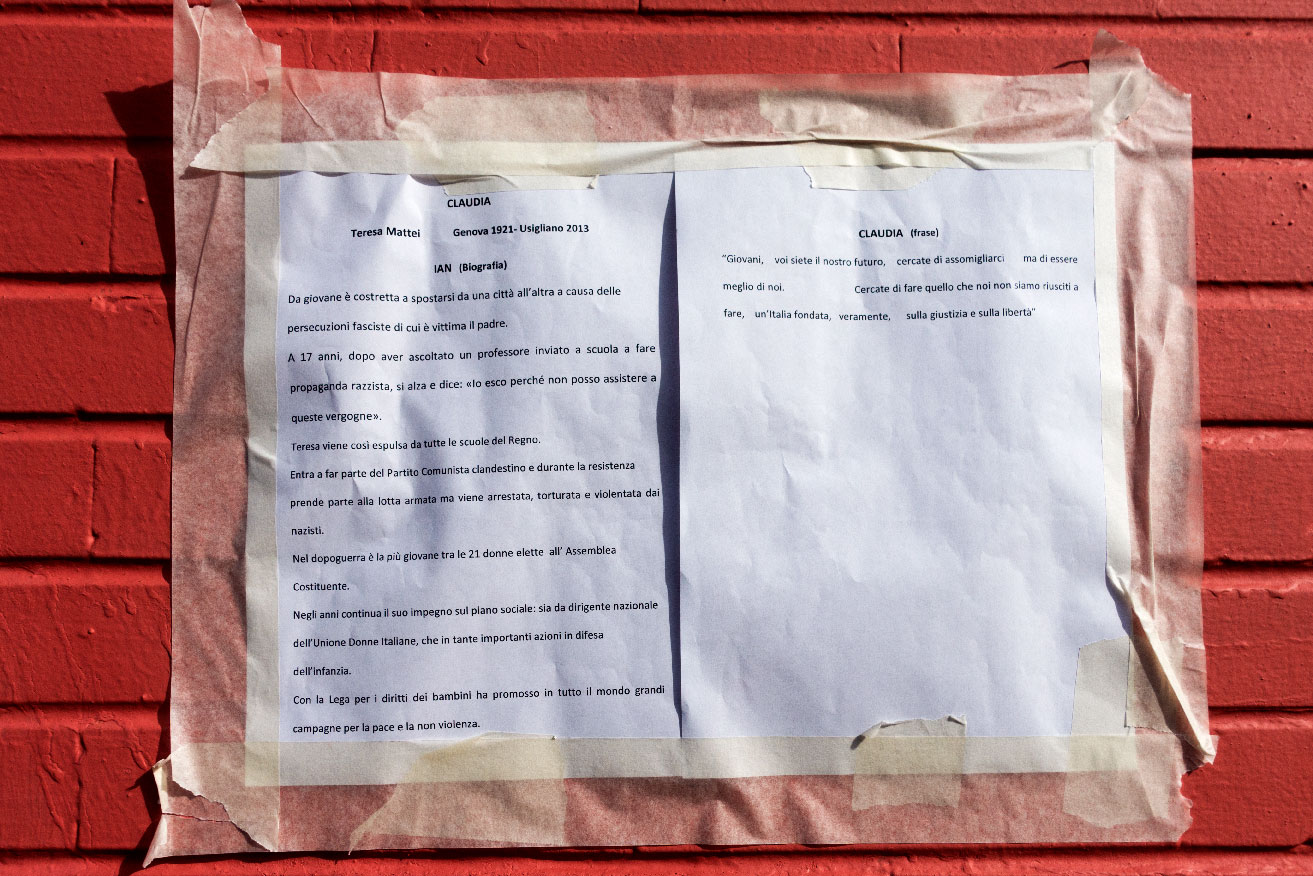 CLAUDIA
Teresa Mattei Genova 1921- Usigliano 2013
IAN (Biografia)
Da giovane è costretta a spostarsi da una città all'altra a causa delle
persecuzioni fasciste di cui è vittima il padre.
A 17 anni, dopo aver ascoltato un professore inviato a scuola a fare
propaganda razzista, si alza e dice: «Io esco perché non posso assistere a
queste vergogne».
Teresa viene così espulsa da tutte le scuole del Regno.
Entra a far parte del Partito Comunista clandestino e durante la resistenza
prende parte alla lotta armata ma viene arrestata, torturata e violentata dai
nazisti.
Nel dopoguerra è la più giovane tra le 21 donne elette all' Assemblea
Costituente.
Negli anni continua il suo impegno sul piano sociale: sia da dirigente nazionale
dell'Unione Donne Italiane, che in tante importanti azioni in difesa
dell'infanzia.
Con la Lega per i diritti dei bambini ha promosso in tutto il mondo grandi
campagne per la pace e la non violenza.
CLAUDIA (frase)
"Giovani, voi siete il nostro futuro, cercate di assomigliarci ma di essere
meglio di noi. Cercate di fare quello che noi non siamo riusciti a
fare, un'Italia fondata, veramente, sulla giustizia e sulla libertà"